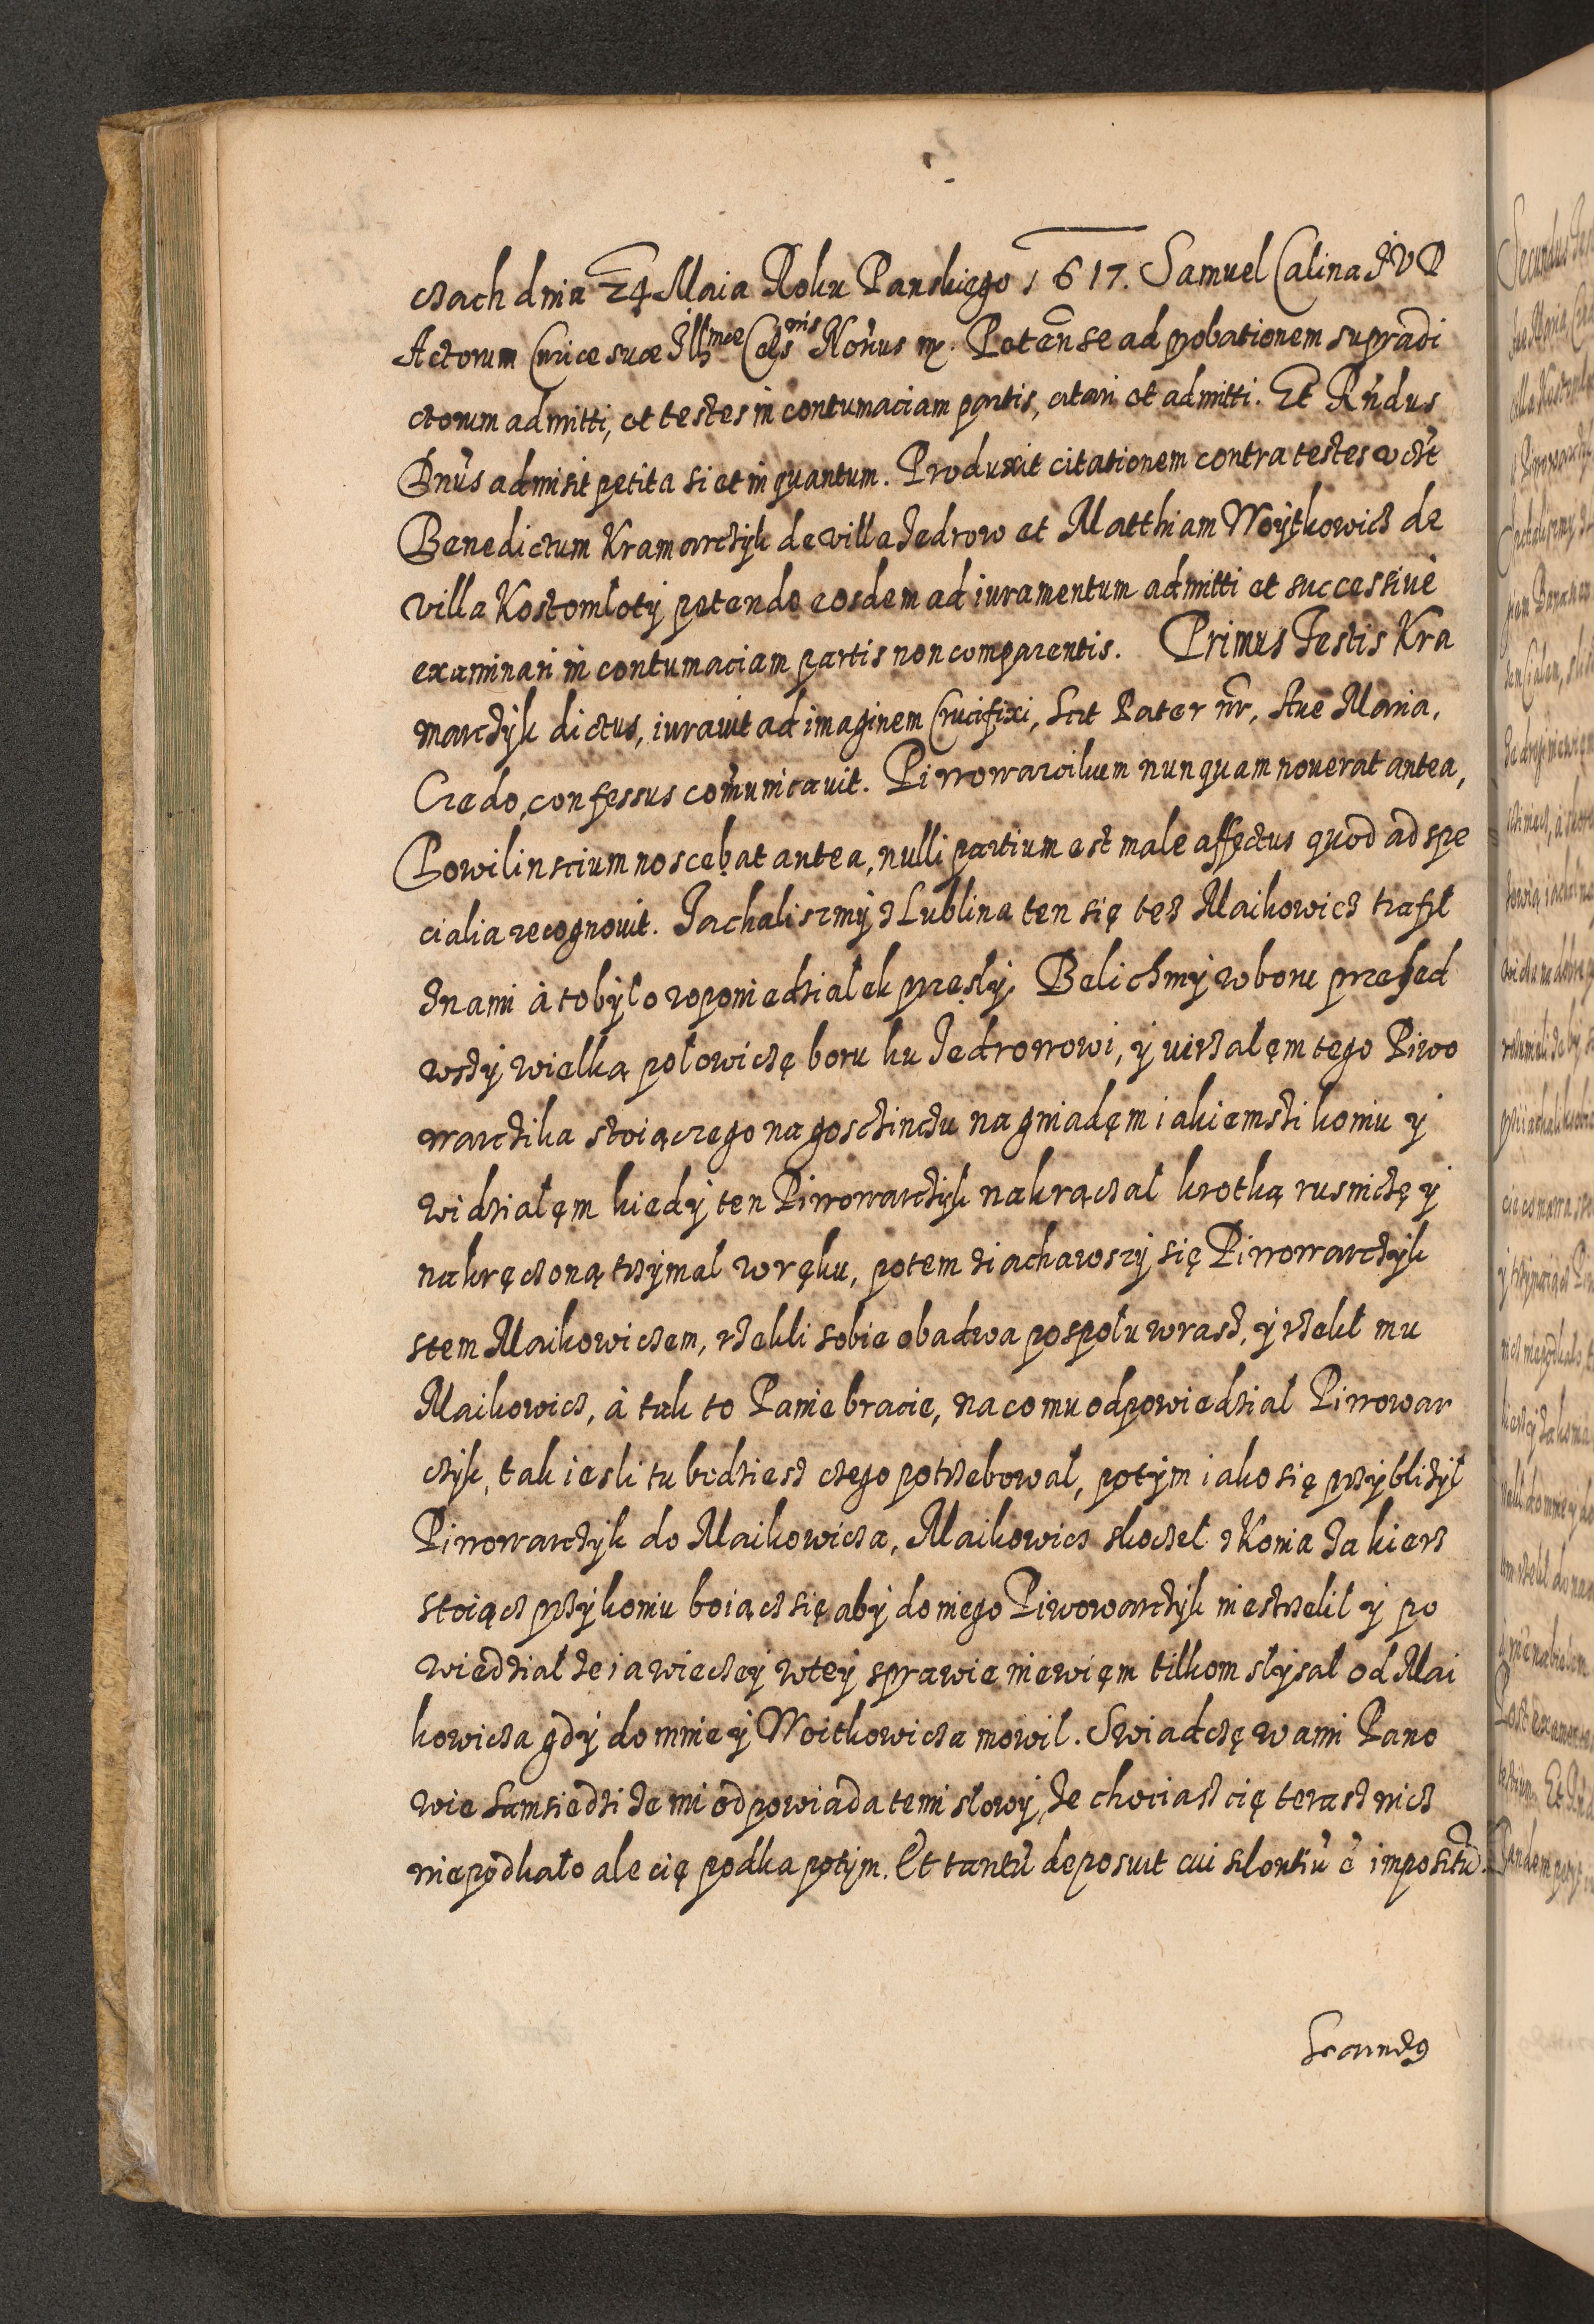 czach dnia 24 Maia Roku Panskiego 1617. Samuel Calina I V D
Actorum Curiae suae Illmae Celsnis Norius mp. Peten se ad probationem supradi
ctorum admitti, et testes in contumaciam partis, citari et admitti. Et Rndus
Dnus admisit petita si et in quantum. Produxit citationem contra testes vdt
Benedictum Kramarczyk de villa Jedrow et Matthiam Woytkowicz de
villa Kostomloty petendo eosdem ad iuramentum admitti et successiue
examinari in contumaciam partis non comparentis. Primus Testis Kra
marczyk dictus, iurauit ad imaginem Crucifixi, scit Pater nr, Aue Maria,
Credo, confessus comunicauit. Piwowarcikum nunquam nouerat antea,
Powilinscium noscebat antea, nulli partium est male affectus quod ad spe
cialia recognouit. Jachalismy z Lublina ten się tez Maikowicz trafił
z nami à to było w poniedziałek przesły. Belichmy w boru przesed
wszy wielką połowiczę boru ku Jedrowowi, y uirzałęm tego Piwo
warczika stoiączego na gosczinczu na gniadęm iakiemszi koniu y
widziałęm kiedy ten Piwowarczyk nakrączał krotką rusniczę y
nakręczoną trzymał w ręku, potem ziachawszy się Piwowarczyk
stem Maikowiczem, rzekli sobie obadwa pospołu wrasz, y rzekł mu
Maikowicz, à tak to Panie bracie, na co mu odpowiedział Piwowar
czyk, tak iesli tu bedziesz czego potrzebował, potym iako się przyblizył
Piwowarczyk do Maikowicza, Maikowicz skoczeł z Konia za kierz
stoiącz przy koniu boiącz się aby do niego Piwowarczyk niestrzelił y po
wiedział ze ia wieczey w tey sprawie niewięm tilkom słysał od Mai
kowicza gdy do mnie y Woitkowicza mowił. Swiadczę wami Pano
wie samsiedzi ze mi odpowiada temi słowy, ze chociasz cię terasz nicz
niepodkało ale cię podka potym. Et tantũ deposuit cui silentiũ ẽ impositũ.
Secundus